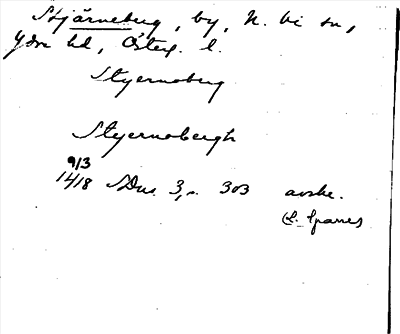 Stjärneberg, by, N. Vi sn,
Ydre hd, Östg. l.
Styernoberg
Styernobergh
9/3
1418 SDns 3, s. 303 avskr.